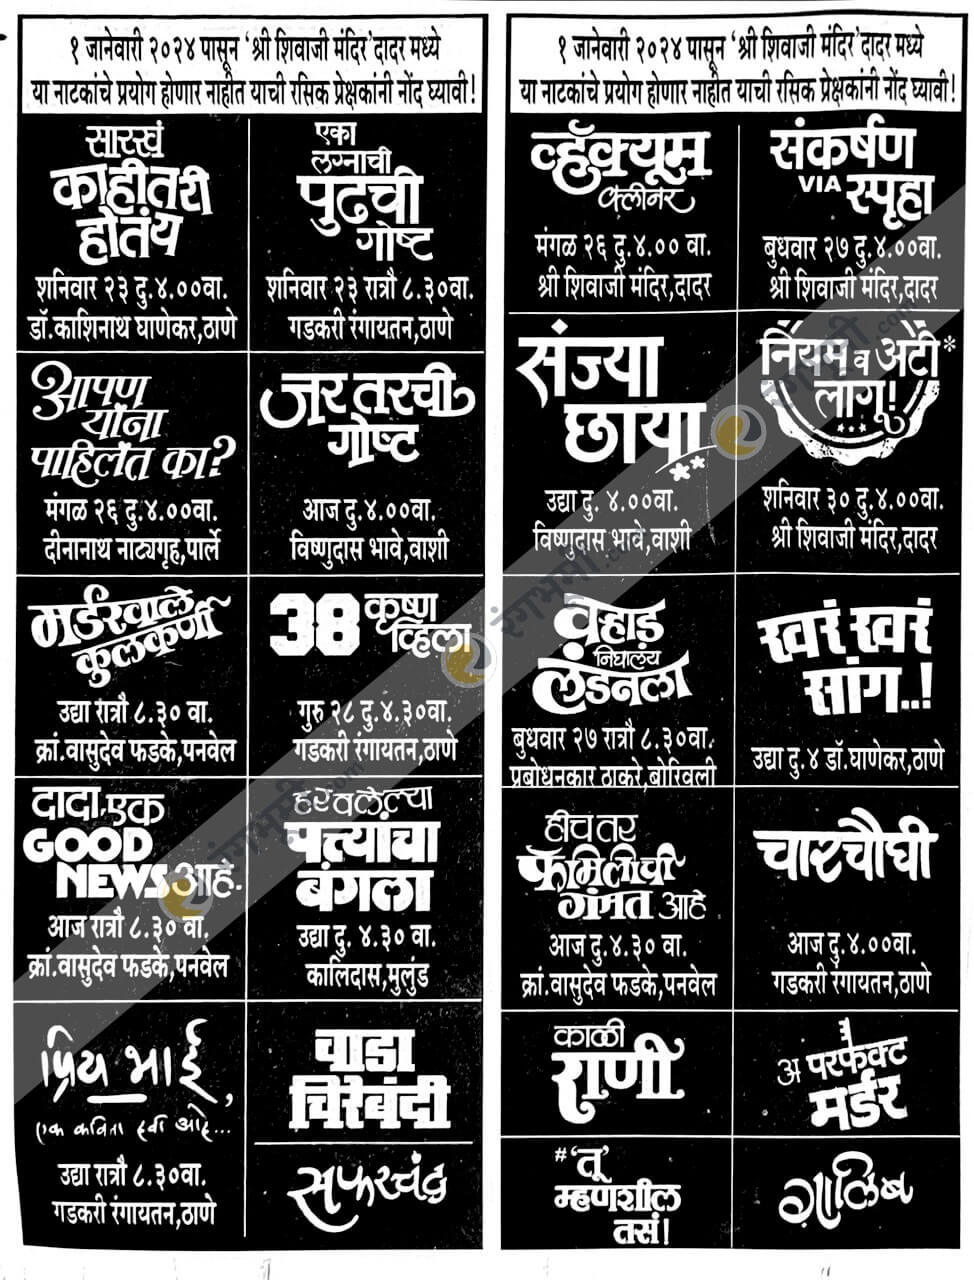 १ जानेवारी २०२४ पासून ‘श्री शिवाजी मंदिर’ दादर मध्ये
या नाटकांचे प्रयोग होणार नाहीत याची रसिक प्रेक्षकांनी नोंद घ्यावी!
सारखं
काहीतरी
होतंय
शनिवार २३ दु.४.००वा.
डॉ.काशिनाथ घाणेकर,ठाणे
एका
लग्नाची
पुढची
गोष्ट
शनिवार २३ रात्रौ ८.३०वा.
गडकरी रंगायतन,ठाणे
आपण
यांना
पाहिलंत का?
मंगळ २६ दु.४.००वा.
दीनानाथ नाट्यगृह,पार्ले
जर तरची
गोष्ट
आज दु.४.००वा.
विष्णुदास भावे,वाशी
मर्डरवाले
कुलकर्णी
उद्या रात्रौ ८.३० वा.
क्रां.वासुदेव फडके,पनवेल
38 कृष्ण
व्हिला
गुरु २८ दु.४.३०वा.
गडकरी रंगायतन,ठाणे
दादा एक
GOOD
NEWS आहे.
आज रात्रौ ८.३० वा.
क्रां.वासुदेव फडके,पनवेल
हरवलेल्या
पत्त्यांचा
बंगला
उद्या दु. ४.३० वा.
कालिदास,मुलुंड
प्रिय भाई,
एक कविता हवी आहे...
उद्या रात्रौ ८.३०वा.
गडकरी रंगायतन,ठाणे
वाडा
चिरेबंदी
सफरचंद
१ जानेवारी २०२४ पासून ‘श्री शिवाजी मंदिर’ दादर मध्ये
या नाटकांचे प्रयोग होणार नाहीत याची रसिक प्रेक्षकांनी नोंद घ्यावी!
व्हॅक्यूम
क्लीनर
मंगळ २६ दु.४.०० वा.
श्री शिवाजी मंदिर,दादर
संकर्षण
VIA स्पृहा
बुधवार २७ दु.४.००वा.
श्री शिवाजी मंदिर,दादर
संज्या
छाया
**
उद्या दु. ४.००वा.
विष्णुदास भावे,वाशी
नियम व अटी*
लागू!
शनिवार ३० दु.४.००वा.
श्री शिवाजी मंदिर,दादर
वऱ्हाड
निघालंय
लंडनला
बुधवार २७ रात्रौ ८.३०वा.
प्रबोधनकार ठाकरे,बोरिवली
खरं खरं
सांग..!
उद्या दु.४ डॉ.घाणेकर,ठाणे
हीच तर
फॅमिलीची
गंमत आहे
आज दु.४.३० वा.
क्रां.वासुदेव फडके,पनवेल
चारचौघी
आज दु.४.००वा.
गडकरी रंगायतन,ठाणे
काळी
राणी
अ परफेक्ट
मर्डर
#‘तू’
म्हणशील
तसं!
ग़ालिब
रंगभूमी.com
रंगभूमी.com
रंगभूमी.com